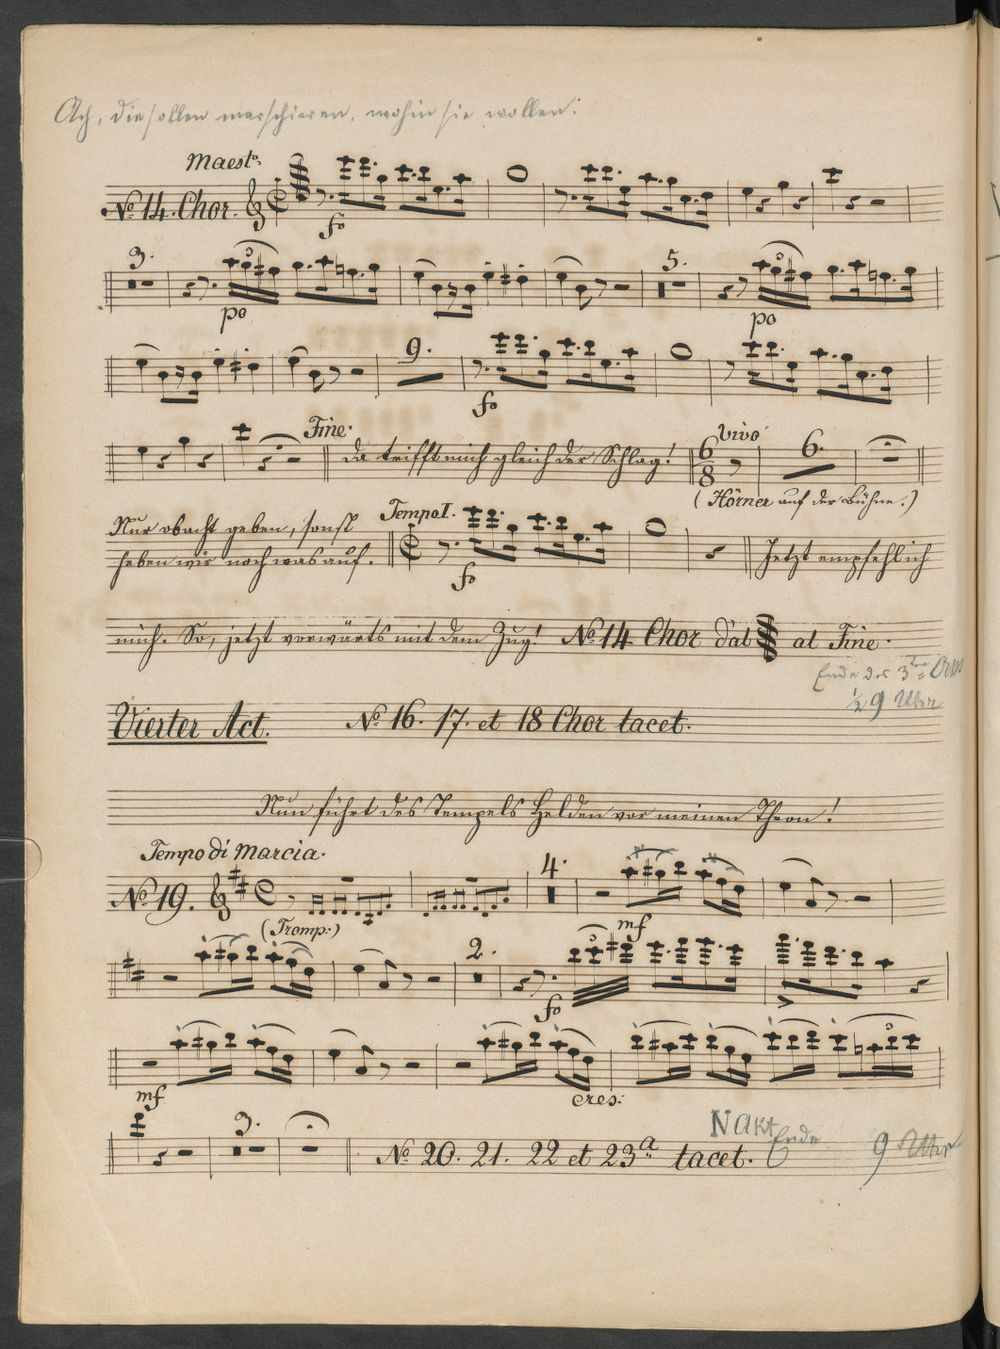 Ach, die sollen marschieren, wohin sie wollen:
Maesto.
No. 14. Chor.
fo
3. 3 5. 3
po po
9.
fo
Fine.
da trifft mich gleich der Schlag!
Vivo
6 8 6.
(Hörner auf der Bühne.)
Nur obacht geben, sonst
heben wir noch was auf.
Tempo I.
fo
Jetzt empfehl ich
mich. So, jetzt vorwärts mit dem Zug! No. 14 Chor dal al Fine.
Ende des 3ten
½ 9 Uhr
Vierter Act. No. 16. 17. et 18 Chor tacet.
Nun führt des Tempels Helden vor meinen Thron!
Tempo di Marcia.
No. 19. 4.
(Tromp.) mf
2. 3
fo
mf cres: 3
3.
No. 20. 21. 22 et 23a tacet.
Nakt Ende 9 Uhr